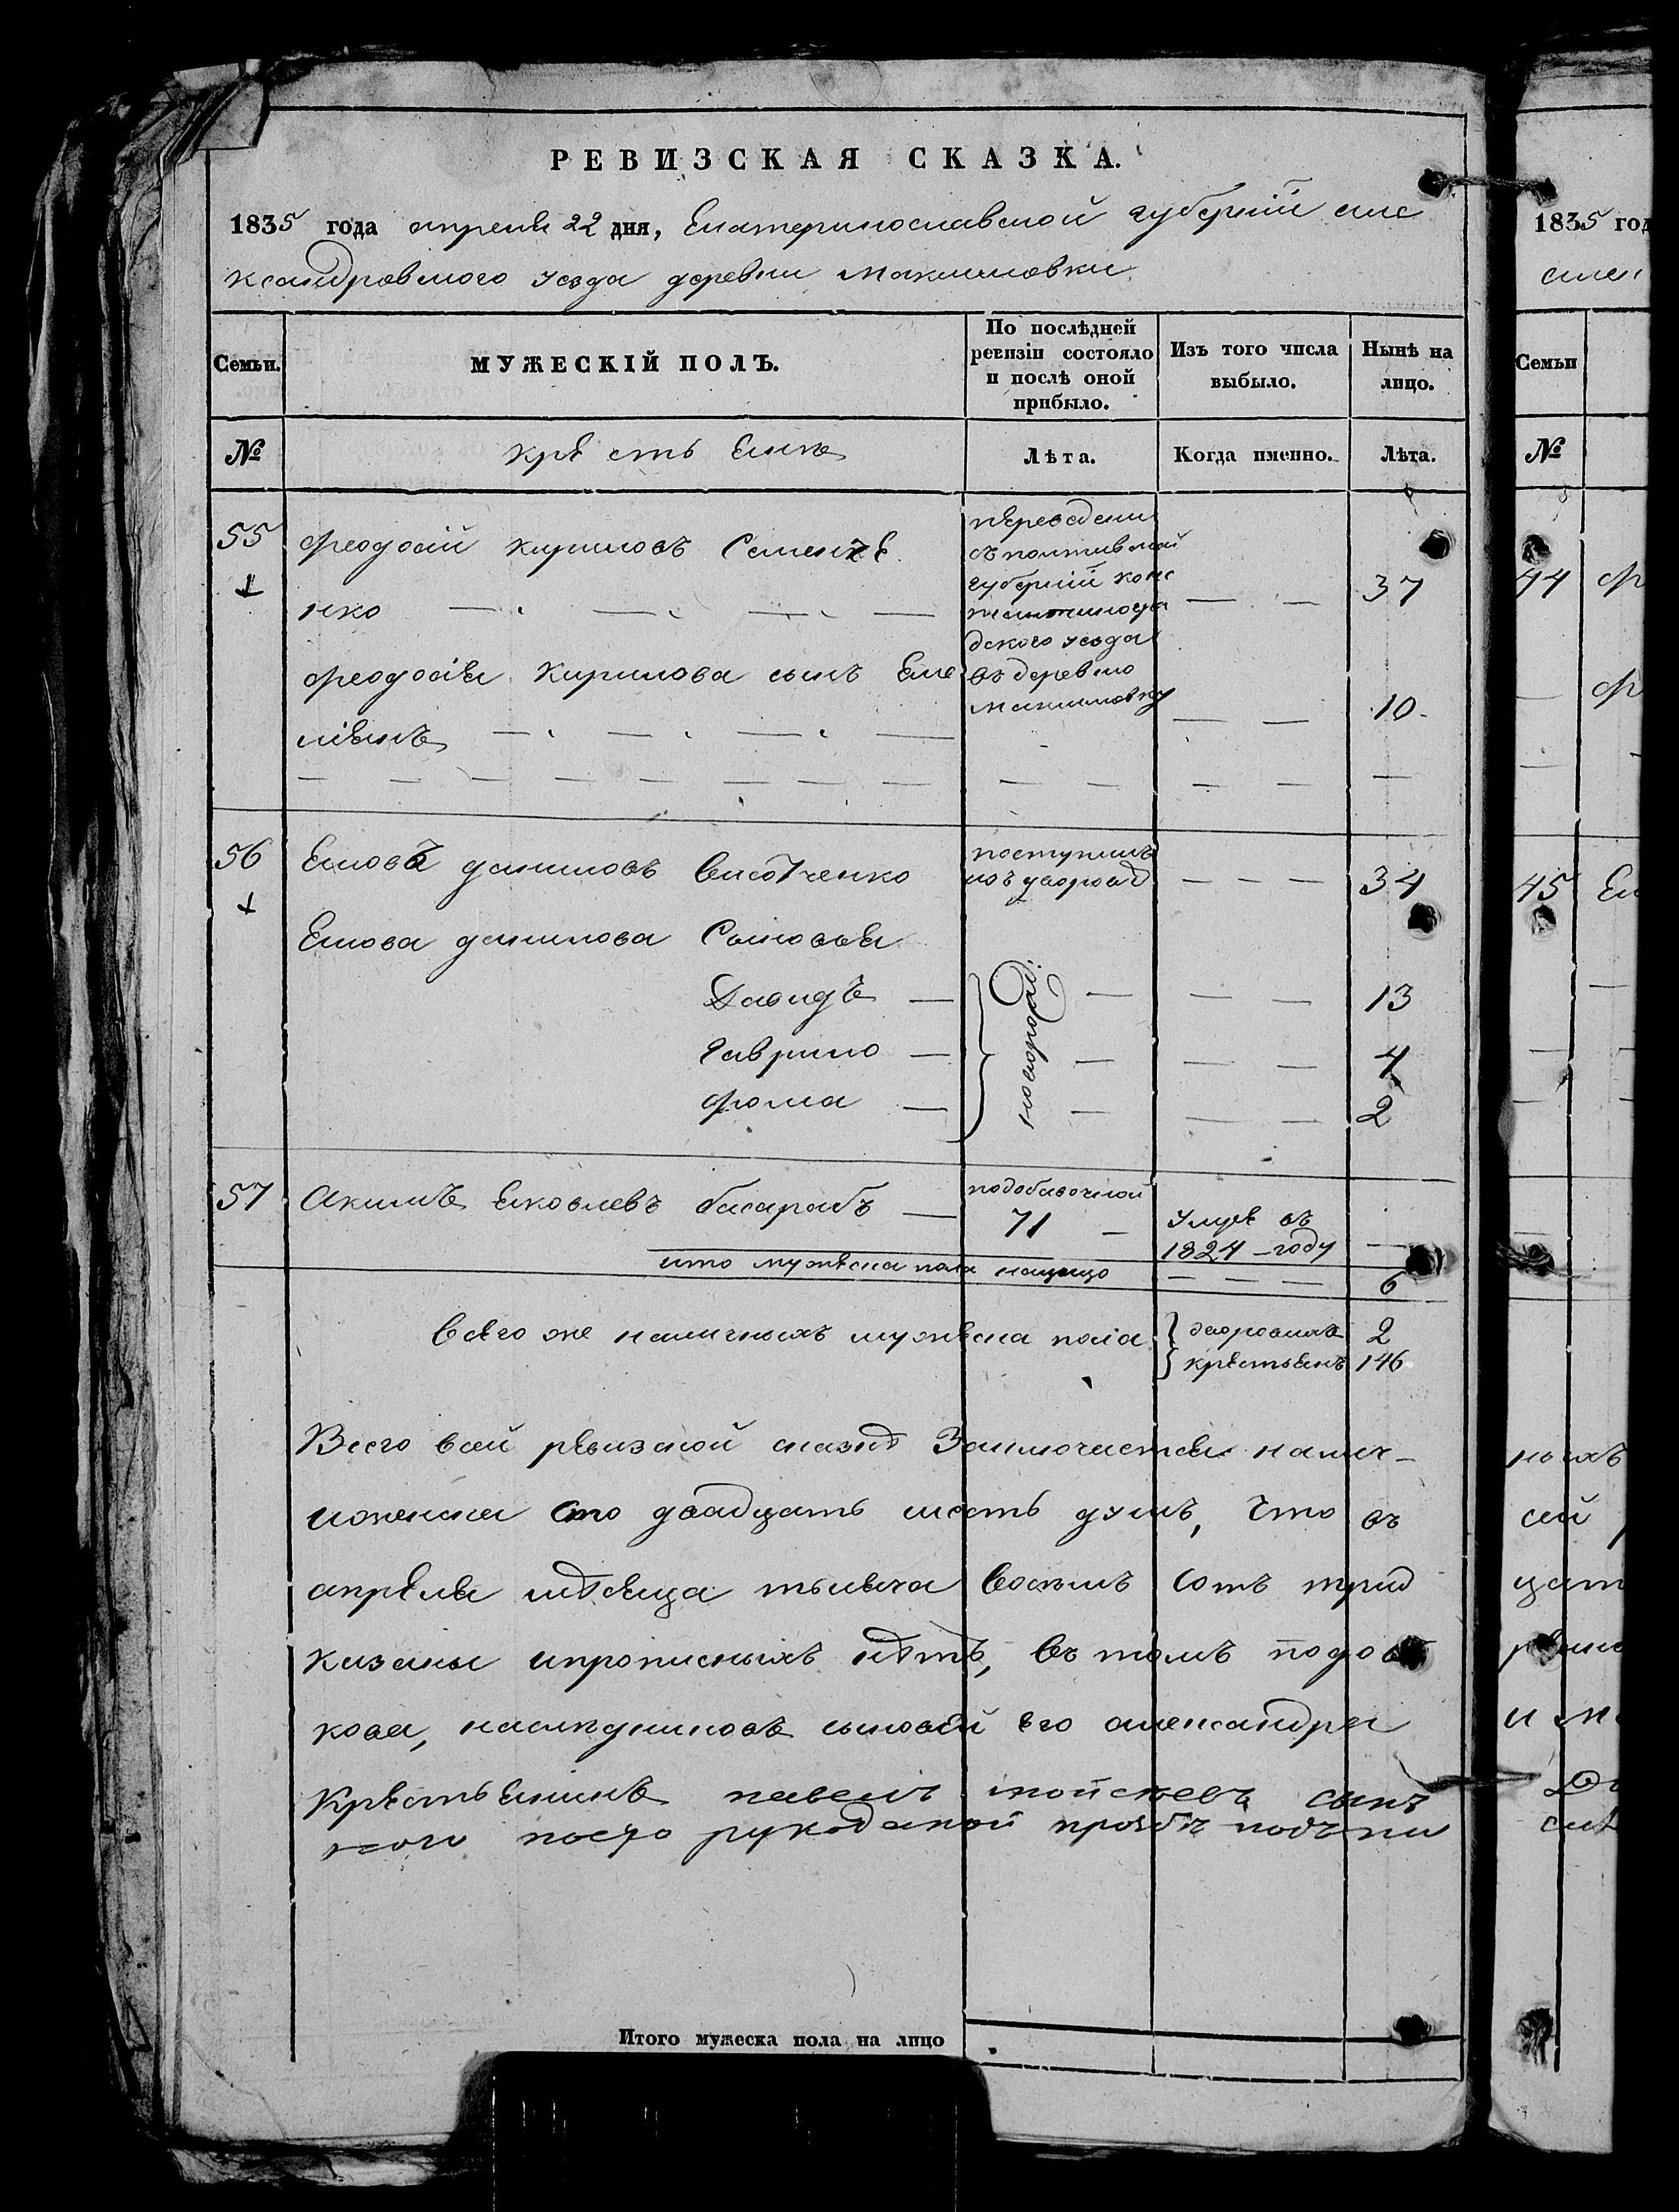 РЕВИЗСКАЯ СКАЗКА.
1835 года апреля 22 дня, Екатеринославской губернiй але
ксандровского уезда деревни Макимовки
Семьи.
МУЖЕСКІЙ ПОЛЪ.
По послѣдней ревизіи состояло и послѣ оной прибыло.
Изъ того числа выбыло.
Нынѣ на лицо.
№
крестьяне
Лѣта.
Когда именно.
Лѣта.
55 феодосiй кириловъ Семенче
нко 37
переведени
съ полтавской
губернiй конс
тантиногра
дского уезда
въ деревню
Макимовку
феодосiя кирилова сынъ Еме
лiянъ 10
56 даниловъ 34
поступилъ
изъ дворов
данилова Сыновья
Давидъ 13
гаврило 4
фома 2
новорожд:
57 Акимъ Яковлевъ басарабъ 71
подобавочной
Умре въ
1824 году
ито мужеска пола налицо 6
всего же наличныхъ мужеска пола дворовыхъ 2
крестьянъ 146
Всего всей ревизской сказкѣ Заключается налич-
иженска сто двадцать шесть душъ, что въ
апреля мѣсяца тысяча восемъ сотъ трид
казаны ипрописныхъ нѣтъ, въ томъ подов
кова, наследниковъ сыновей его александра
Крестьянинъ павелъ мойсѣевъ сынъ
ного посего рукоданой прозбѣ подъпи
Итого мужеска пола на лицо
1835 год
алек
Семьи
№
44 ф
ф
45
ныхъ
сей
цат
и м